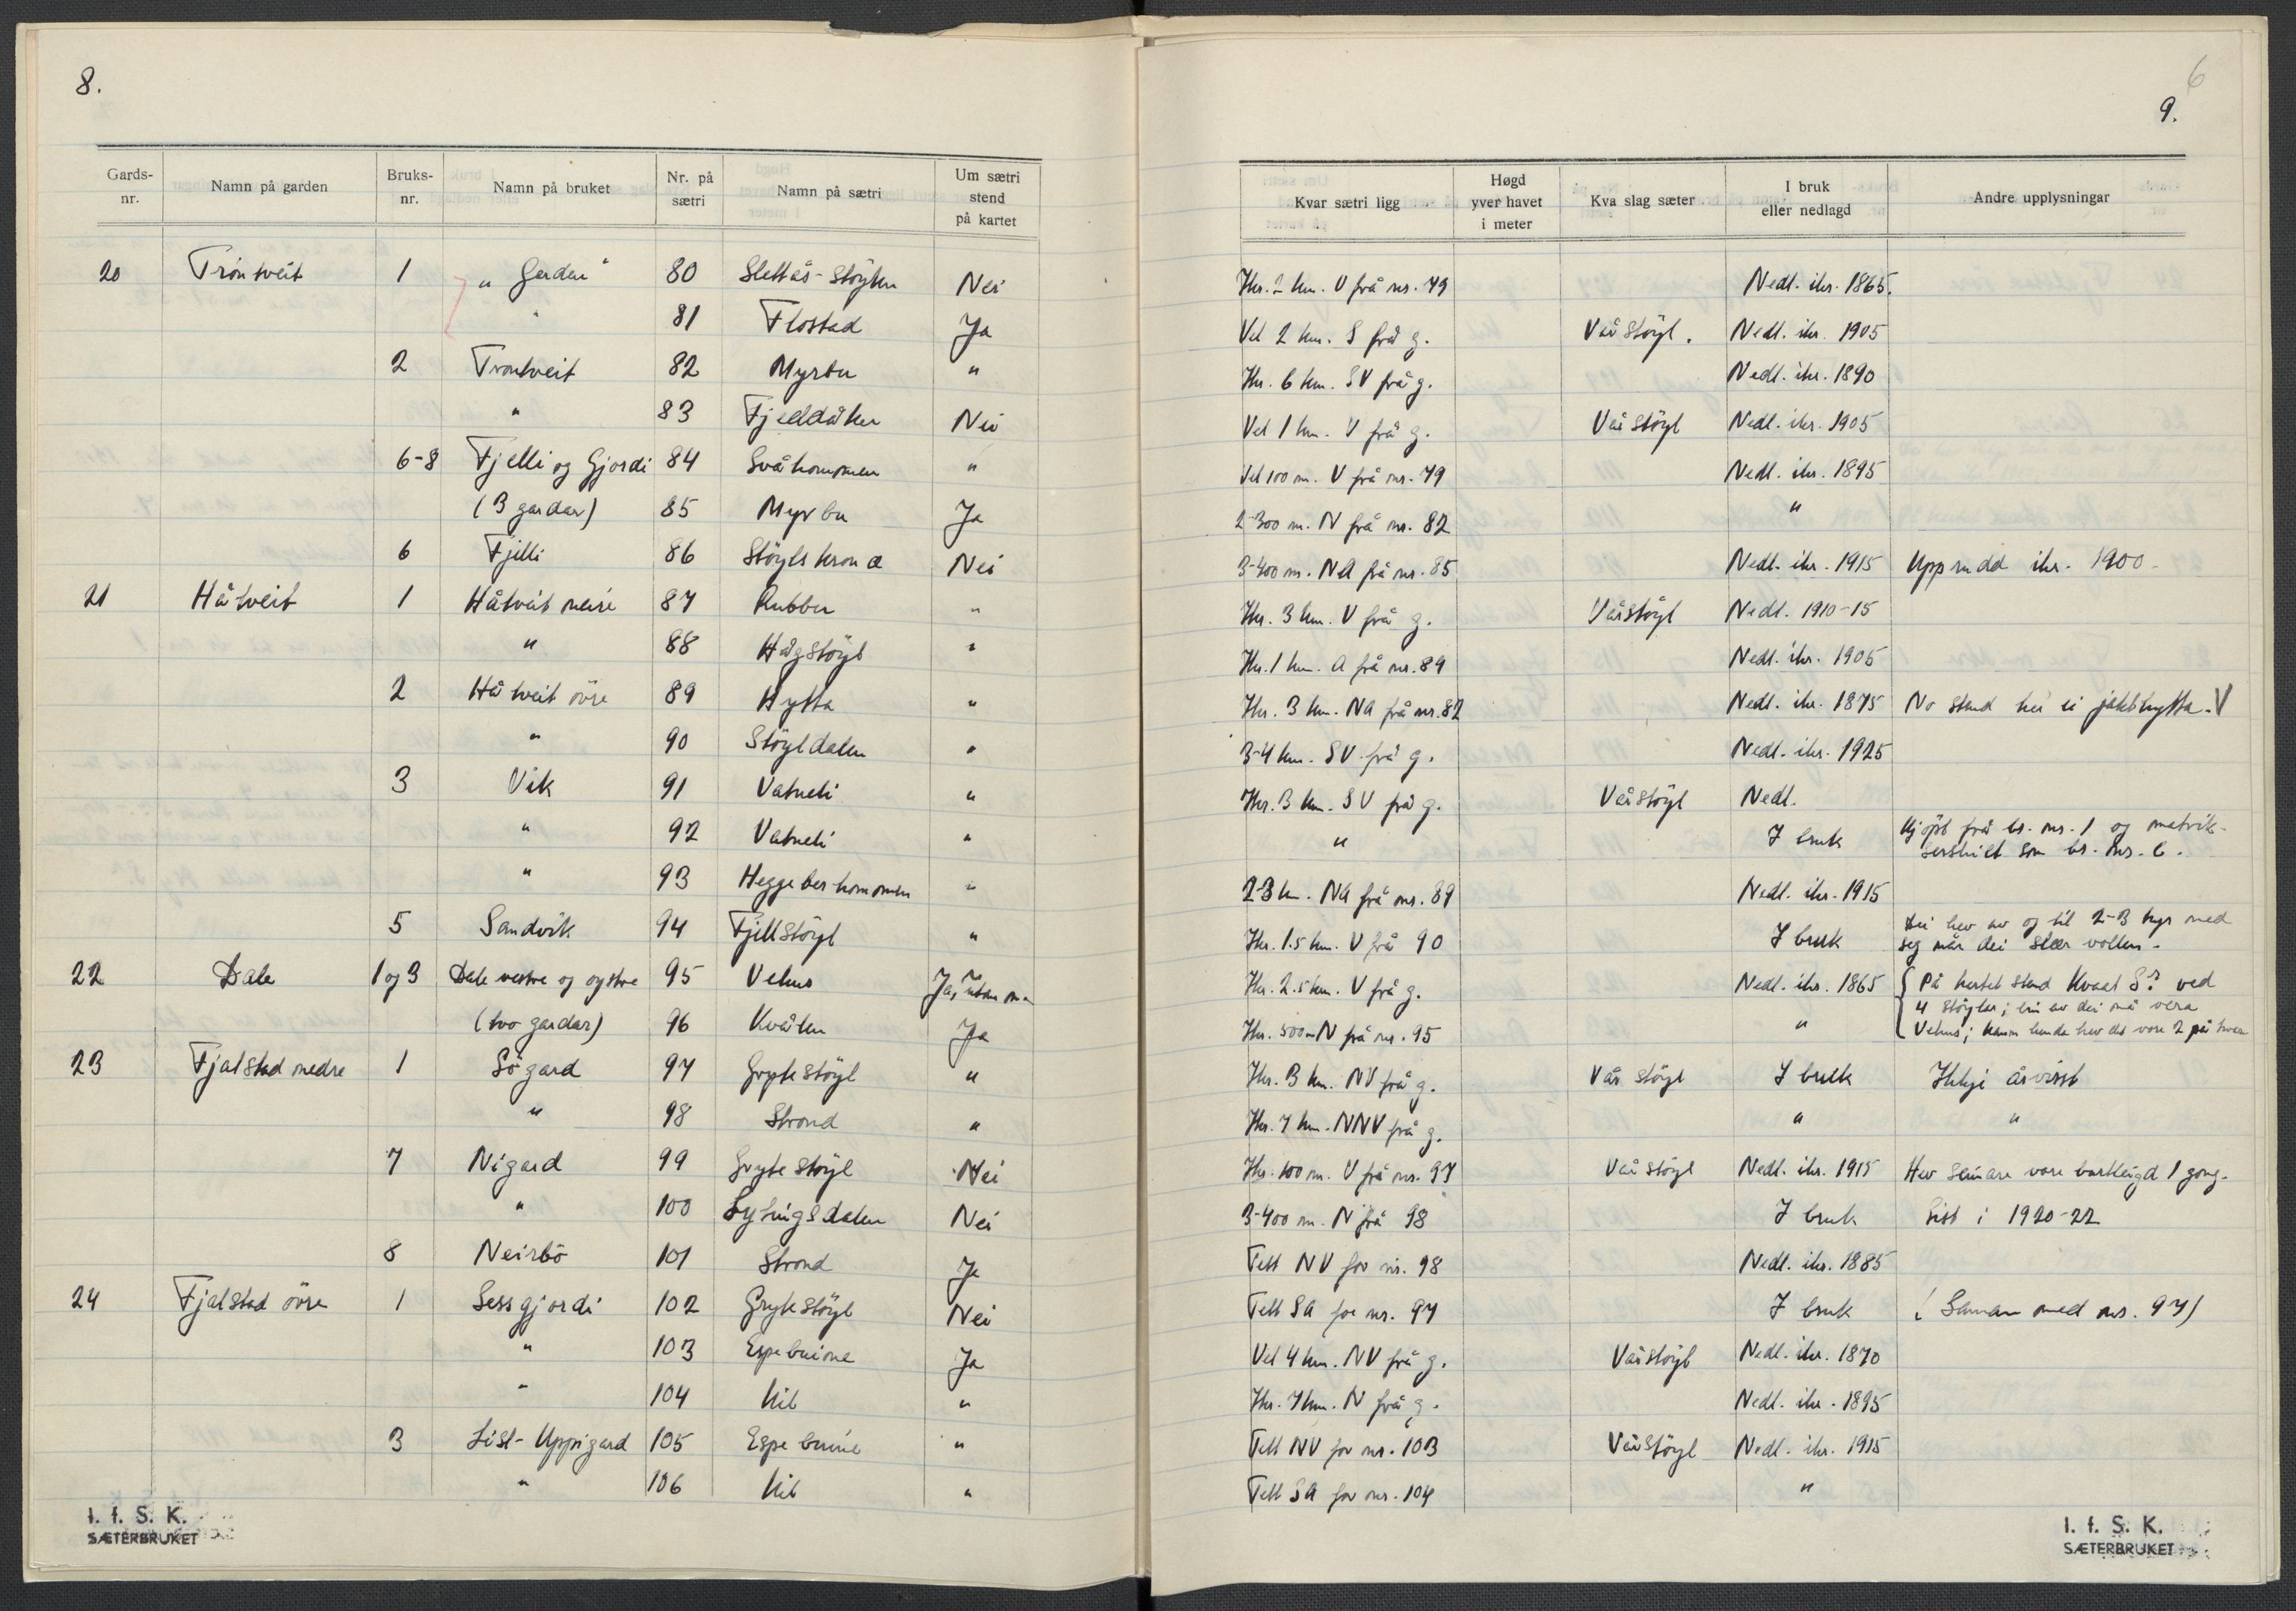 8.
Gards-nr. Namn på garden Bruks-nr. Namn på bruket Nr. på sætri Namn på sætri Um sætri stend på kartet
20 Tröntveit 1 „Garden“ 80 Slettås-stöylen Nei
" 81 Flostad Ja
2 Trontveit 82 Myrbu "
" 83 Fjelldåken Nei
6-8 Fjelli og Gjordi 84 Svåhommen "
(3 gardar) 85 Myrbu Ja
6 Fjelli 86 Nei
21 Håtveit 1 Håtveit 87 Rubbu "
" 88 Hægstöyl "
2 Håtveit övre 89 Hytta "
" 90 Stöyldalen "
3 Vik 91 Vatneli "
" 92 Vatneli "
" 93 "
5 Sandvik 94 Fjellstöyl "
22 Dale 1 og 3 Dale vestre og oystre 95 Vehus Ja, utan n.
(tvo gardar) 96 Kvålen Ja
23 Fjalstad nedre 1 Sögard 97 Grytestöyl "
" 98 Strond "
7 Nigard 99 Grytestöyl Nei
" 100 Nei
8 Neirbö 101 Strond Ja
24 Fjalstad övre 1 Sessgjordi 102 Grytestöyl Nei
" 103 Ja
" 104 "
3 List-Uppigard 105 "
" 106 "
I. f. S. K.
SÆTERBRUKET
6
9.
Kvar sætri ligg Høgd yver havet i meter Kva slag sæter I bruk eller nedlagd Andre upplysningar
Ikr. 2 km. V frå nr. 79 Nedl. ikr. 1865.
Vel 2 km. S frå g. Vårstöyl. Nedl. ikr. 1905
Ikr. 6 km. SV frå g. Nedl. ikr. 1890
Vel 1 km. V frå g. Vårstöyl Nedl. ikr. 1905
Vel 100 m. V frå nr. 79 Nedl. ikr. 1895
2-300 m. N frå nr. 82 "
3-400 m. NA frå nr. 85 Nedl. ikr. 1915 Upprudd ikr. 1900.
Ikr. 3 km. V frå g. Vårstöyl Nedl. 1910-15
Ikr. 1 km. A frå nr. 89 Nedl. ikr. 1905
Ikr. 3 km. NA frå nr. 82 Nedl. ikr. 1875 No stend her ei jakthytta. V
3-4 km. SV frå g. Nedl. ikr. 1925
Ikr. 3 km. SV frå g. Vårstöyl Nedl.
" I bruk Kjöpt frå br. nr. 1 og matrik-
serskilt som br. nr. 6.
2-3 km. NA frå nr. 89 Nedl. ikr. 1915
Ikr. 1.5 km. V frå 90 I bruk Dei hev av og til 2-3 kyr med
seg når dei slær vollen.
Ikr. 2.5 km. V frå g. Nedl. ikr. 1865 På kartet stend Kvaal S? ved
Ikr. 500 m N frå nr. 95 " 4 stöylar; ein av dei må vera
Vehus; hev det vore 2 på
Ikr. 3 km. NV frå g. Vårstöyl I bruk Ikkje årvisst
Ikr. 7 km. NNV frå g. " "
Ikr. 100 m. V frå nr. 97 Vårstöyl Nedl. ikr. 1915 Hev seinare vore burtleigd 1 gong.
3-400 m. N frå 98 I bruk Sist i 1920-22
Tett NV for nr. 98 Nedl. ikr. 1885
Tett SA for nr. 97 I bruk (Saman med nr. 97)
Vel 4 km. NV frå g. Vårstöyl Nedl. ikr. 1870
Ikr. 7 km. N frå g. Nedl. ikr. 1895
Tett NV for nr. 103 Vårstöyl Nedl. ikr. 1915
Tett SA for nr. 104 "
I. f. S. K.
SÆTERBRUKET